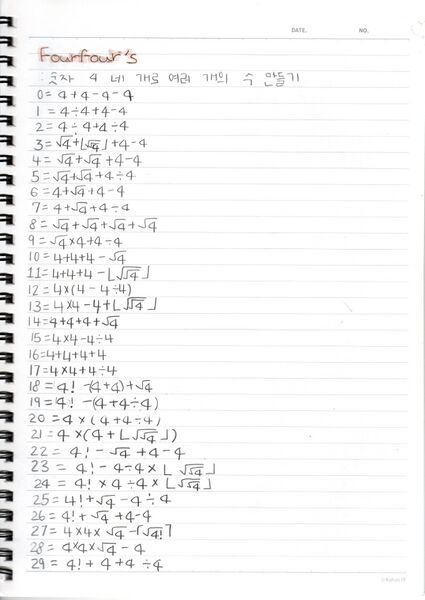 DATE. NO.
Fourfour's
: 숫자 4 네 개로 여러 개의 수 만들기
0 = 4+4-4-4
1 = 4÷4+4-4
2 = 4÷4+4÷4
3 = √4+⌊√√4⌋+4-4
4 = √4+√4+4-4
5 = √4+√4+4÷4
6 = 4+√4+4-4
7 = 4+√4+4÷4
8 = √4+√4+√4+√4
9 = √4×4+4÷4
10 = 4+4+4-√4
11 = 4+4+4-⌊√√4⌋
12 = 4×(4-4÷4)
13 = 4×4-4+⌊√√4⌋
14 = 4+4+4+√4
15 = 4×4-4÷4
16 = 4+4+4+4
17 = 4×4+4÷4
18 = 4! -(4+4)+√4
19 = 4! -(4+4÷4)
20 = 4×(4+4÷4)
21 = 4×(4+⌊√√4⌋)
22 = 4! -√4+4-4
23 = 4! -4÷4×⌊√√4⌋
24 = 4! ×4÷4×⌊√√4⌋
25 = 4!+√4-4÷4
26 = 4!+√4+4-4
27 = 4×4×√4-⌈√4!⌉
28 = 4×4×√4-4
29 = 4!+4+4÷4